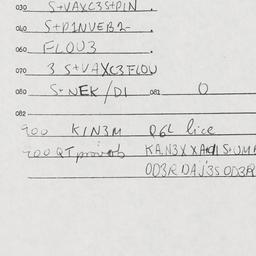 030 S+VAXC3S+PIN .
040 S+PINVEB2- .
060 FLOU3 .
070 3 S+VAXC3FLOU
080 S+NEK/DI 081 0
082
700 KIN3M Q6L lice
700 QT proverb KA,N3XXA
OD3R DA,i3S OD3R